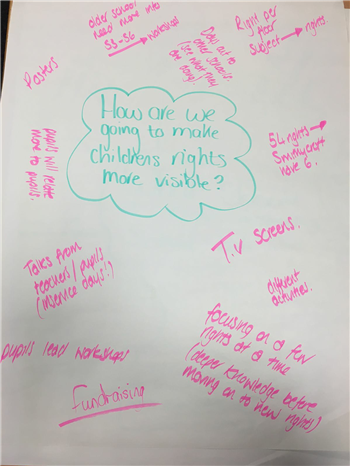 older school
need more info
S3-S6 → workshop
Days out to
other schools
(see what they
are doing)
Right per
Year
Subject → rights.
Posters
How are we
going to make
childrens rights
more visible?
pupils will relate
more to pupils.
54 rights →
have 6.
T.V screens.
Talks from
teachers/pupils
(inservice days!)
different
activities.
focusing on a few
rights at a time
(deeper knowledge before
moving on to new rights)
pupils lead workshops
fundraising